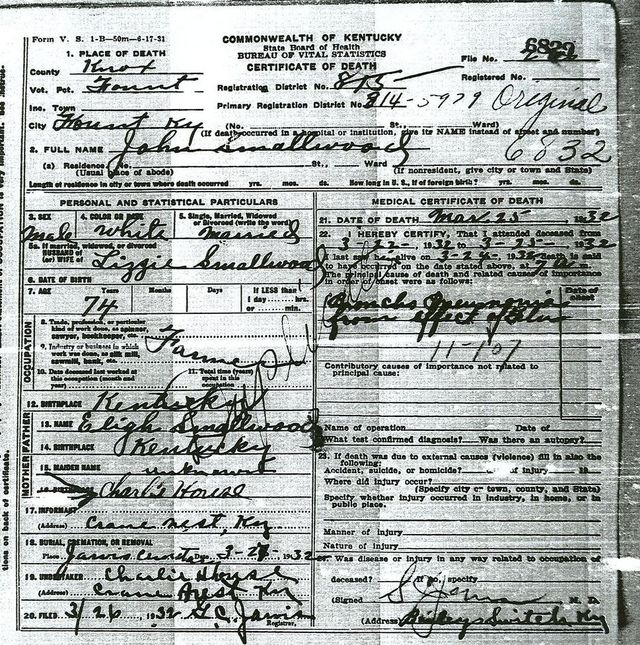 Form V. S. 1-B—50m—6-17-31
COMMONWEALTH OF KENTUCKY
State Board of Health
BUREAU OF VITAL STATISTICS
CERTIFICATE OF DEATH
1. PLACE OF DEATH
County Knox
Vot. Pct. Fount
Inc. Town
City Fount Ky (No. St., Ward)
Registration District No. 815
Primary Registration District No. 814-5979
File No. 6832
Registered No.
Original
6832
(If death occurred in a hospital or institution, give its NAME instead of street and number)
2. FULL NAME John Smallwood
(a) Residence (No. St., Ward
(Usual place of abode) (If nonresident, give city or town and State)
Length of residence in city or town where death occurred yrs. mos. ds. How long in U. S., if of foreign birth? yrs. mos. ds.
PERSONAL AND STATISTICAL PARTICULARS
3. SEX 4. COLOR OR RACE 5. Single, Married, Widowed or Divorced
male white married
5a. If married, widowed, or divorced
HUSBAND of
(or) WIFE of Lizzie Smallwood
6. DATE OF BIRTH
7. AGE Years Months Days If LESS than
74 1 day hrs.
or min.
OCCUPATION
8. Trade, profession, or particular
kind of work done, as spinner,
sawyer, bookkeeper, etc.
9. Industry or business in which
work was done, as silk mill,
sawmill, bank, etc.
10. Date deceased last worked at
this occupation (month and
year)
11. Total time (years)
spent in this
occupation
12. BIRTHPLACE Kentucky
FATHER
13. NAME Eligh Smallwood
14. BIRTHPLACE Kentucky
MOTHER
15. MAIDEN NAME unknown
Charlie House
17. INFORMANT
(Address) Crane nest, Ky
18. BURIAL, CREMATION, OR REMOVAL
Place Date 1932
19. UNDERTAKER Charlie House
(Address) Crane Nest Ky
20. FILED 3/26 1932 Registrar.
MEDICAL CERTIFICATE OF DEATH
21. DATE OF DEATH Mar. 25 1932
22. I HEREBY CERTIFY, That I attended deceased from
3-22- 1932 to 3-25- 1932
I last saw him alive on 3-24- 1932 death is said
to have occurred on the date stated above, at m.
The principal cause of death and related causes of importance
in order of onset were as follows:
Date of onset
Broncho Pneumonia
from effect of Flu
Contributory causes of importance not related to
principal cause:
Name of operation Date of
What test confirmed diagnosis? Was there an autopsy?
23. If death was due to external causes (violence) fill in also the
following:
Accident, suicide, or homicide? of injury 19
Where did injury occur?
(Specify city or town, county, and State)
Specify whether injury occurred in industry, in home, or in
public place.
Manner of injury
Nature of injury
Was disease or injury in any way related to occupation of
deceased? If so, specify
(Signed M. D.
(Address) Baileys Switch Ky
tions on back of certificate.